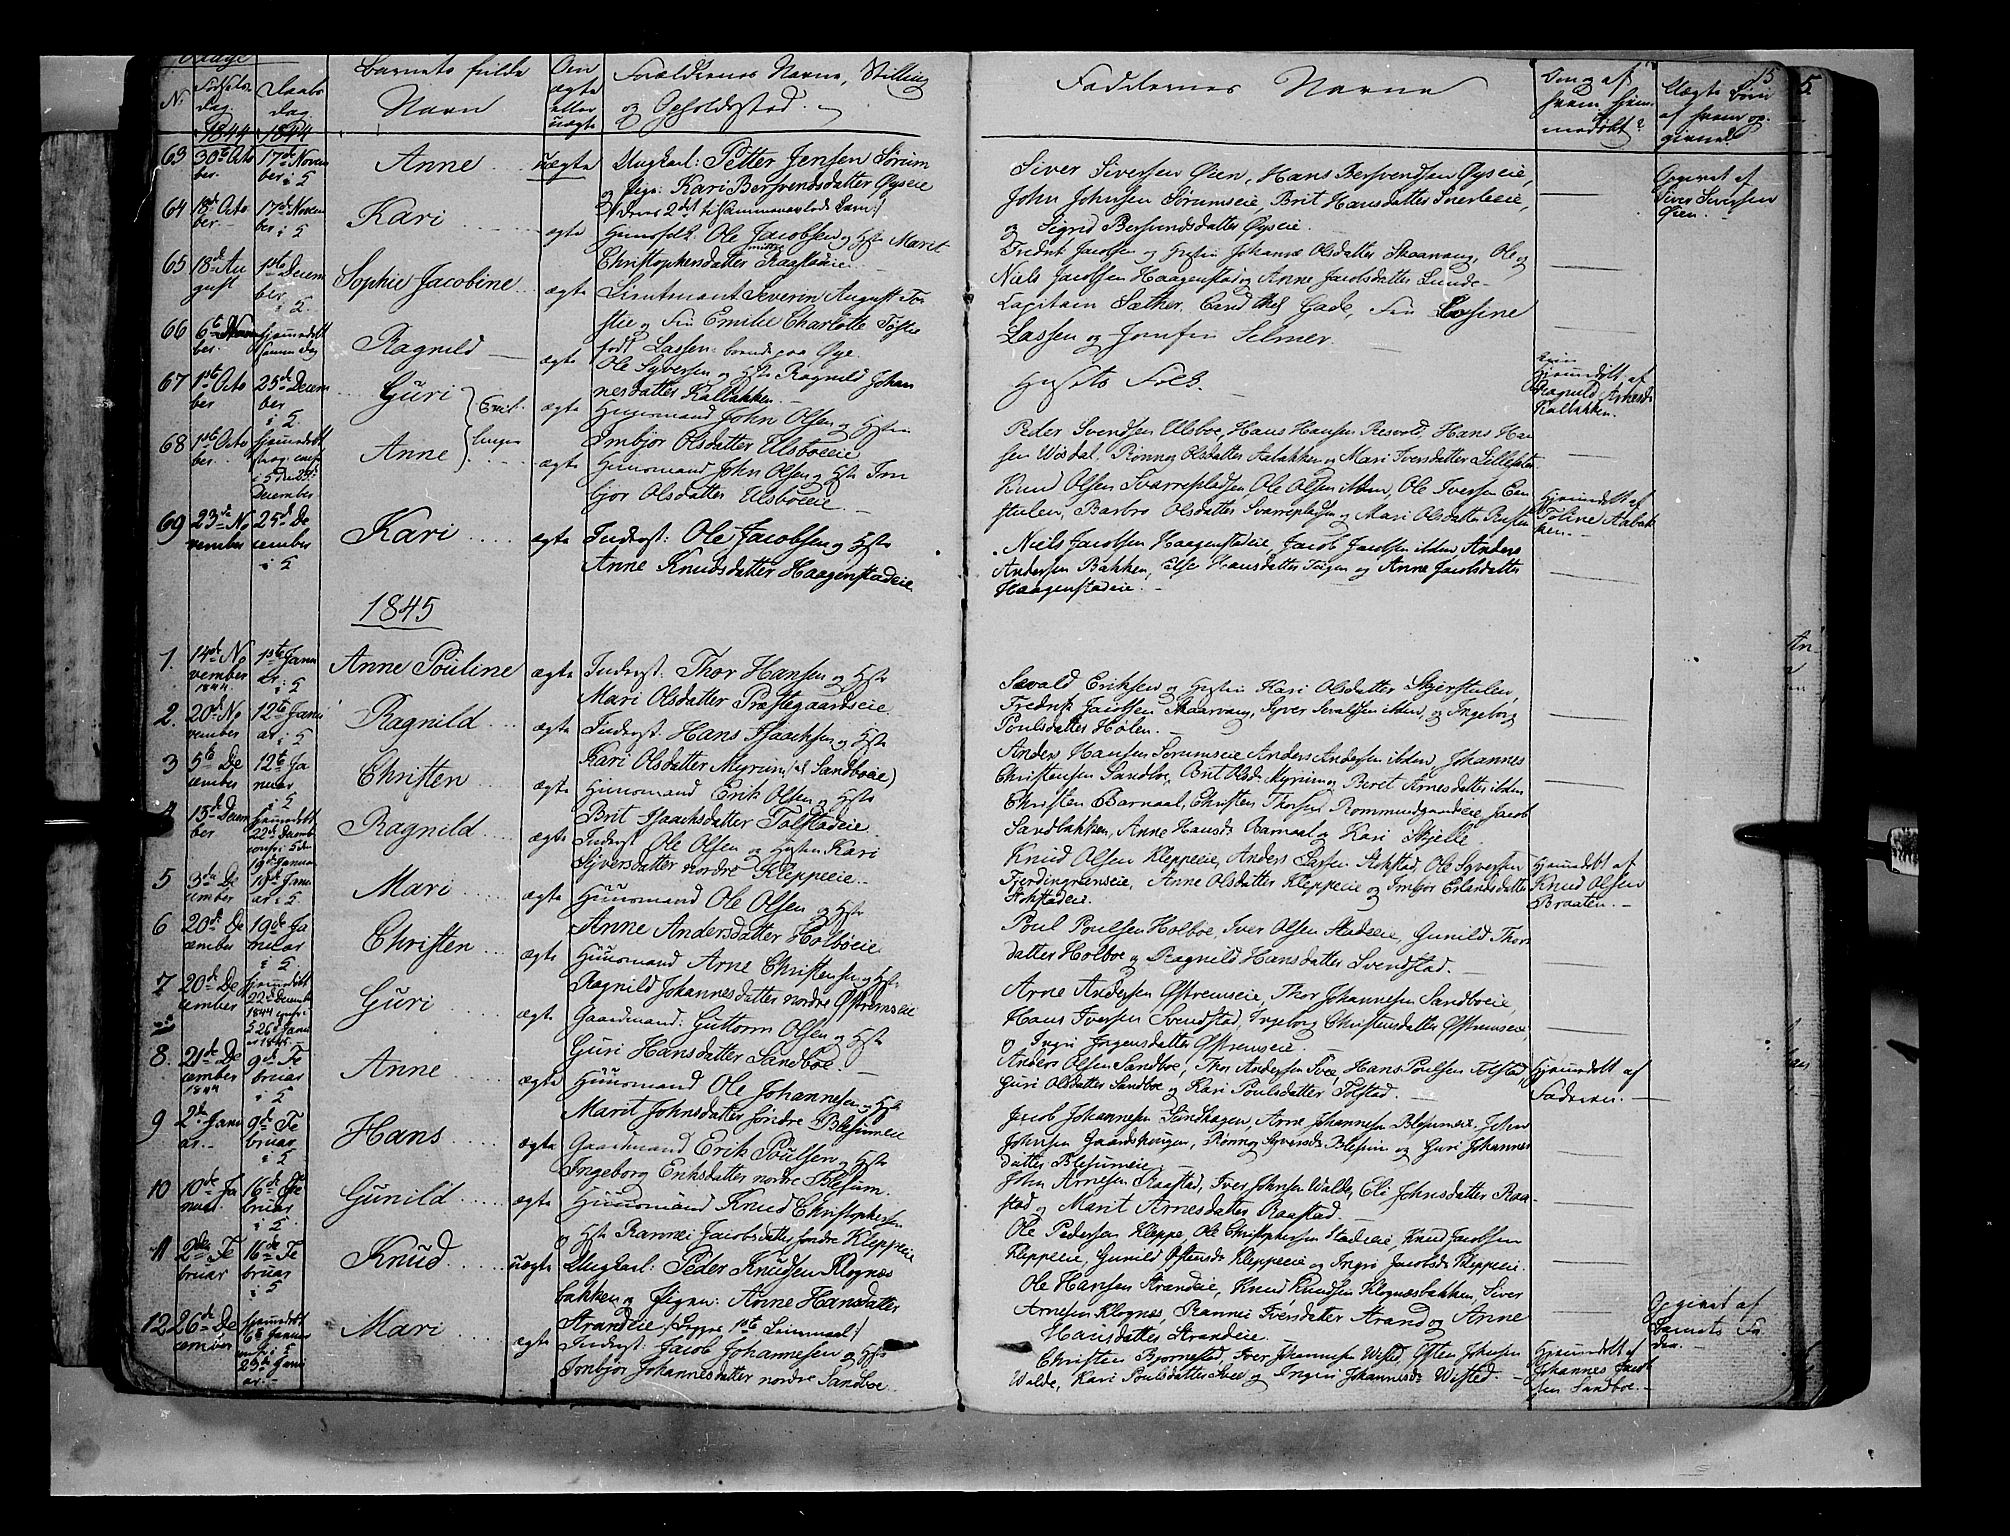 15
5
N. Fødsels dag. Daabs dag. Barnets fulde Navn Om ægte eller uægte Forældrenes Navne, Stilling og Opholdssted. Faddernes Navne
1844 1844
63 30te Octo ber. 17de Novem ber i 5 Anne uægte Ungkarl: Petter Jensen Sørum
og Pige: Kari Bersvendsdatter Øyseie
Siver Siversen Øien, Hans Bersvendsen Øyseie,
John Johnsen Sørumseie, Brit Hansdatter
og Sigrid Bersvendsdatter Øyseie.
Opgivet af Siver Siversen Øien.
64 18de Octo ber. 17de Novem ber i 5 Kari ægte Huusfolk: Ole Jacobsen og Hstr Marit
Christophersdatter Raastadeie
Fredrik Jacobsen og Hustru Johanne Olsdatter Skaarvang, Ole og
Niels Jacobsen Haagenstad og Anne Jacobsdatter Lunde
65 18de Au gust 1ste Decem ber i 5. Sophie Jacobine ægte Lieutenant Severin August
og Fru Emilie Charlotte
født Lassen: boende paa Øye.
Capitain Sæther, Cand. Gade, Fru Losine
Lassen og Jomfru Selmer.
66 ber. hjemmedøbt samme Dag Ragnild ægte Ole Syversen og Hstr Ragnild Johan
nesdatter Kalbakken.
Husets Folk.
Hjemmedøbt af Ragnild Kalbakken.
67 1ste Octo ber 25de Decem ber i 5 Guri ægte Huusmand John Olsen og Hustru
Imbjør Olsdatter Ulsboeeie
Peder Svendsen Ulsboe, Hans Hansen Resvold, Hans Han
sen Wisdal, Rønnog Olsdatter Aabakken og Mari Iversdatter
68 1ste Octo ber. hjemmedøbt i 5 den 25de December Anne ægte Huusmand John Olsen og Hstr Im
bjør Olsdatter Ulsboeeie.
Knud Olsen Sværrepladsen, Ole Olsen ibidem, Ole Iversen
Barbro Olsdatter Sværrepladsen og Mari Olsdatter
Hjemmedøbt af Toline Aabak ken.
69 23de No vember 25de De cember i 5 Kari ægte Inderst: Ole Jacobsen og Hstr
Anne Knudsdatter Haagenstadeie
Niels Jacobsen Haagenstadeie, Jacob Jacobsen ibidem, Anders
Andersen Bakken, Else Hansdatter og Anne Jacobsdatter
Haagenstadeie.
1845
1. 14de No vember 1844 1ste Janu ar i 5 Anne Pouline ægte Inderst: Thor Hansen og Hstr
Mari Olsdatter Præstegaardseie.
Sævald Eriksen og Hustru Kari Olsdatter
Fredrik Jacobsen Skaarvang, Syver Sevaldsen ibidem, og Ingeborg
Poulsdatter Hølen.
2. 20de No vember 12te Janu ar i 5 Ragnild ægte Inderst: Hans Isaachsen og Hstr
Kari Olsdatter Myrum (el Sandboeie)
Anders Hansen Sørumseie, Anders Andersen ibidem, Johannes
Christensen Sandboe, Brit Olsdr Myrum og Beret Arnesdatter ibidem
3 5te De cember 12te Ja nuar i 5 Christen ægte Huusmand Erik Olsen og Hstr
Brit Isaachsdatter Tolstadeie
Christen Barnaal, Christen Thorsen Rommundgaardeie, Jacob
Sandbakken, Anne Hansdr Barnaal og Kari Skjelle
4 15de Decem ber hjemmedøbt 22de Decemb. conf. i 5 den 19de Januar Ragnild ægte Inderst Ole Olsen og Hustru Kari
Syversdatter nordre Kleppeeie
Knud Olsen Kleppeeie, Anders Larsen Stokstad, Ole Syversen
Fjerdingrænseie, Anne Olsdatter Kleppeeie og Imbjør Erlandsdatter
Stokstadeie.
Hjemmedøbt af Knud Olsen Braaten.
5 3die De cember 19de Janu ar i 5 Mari ægte Huusmand Ole Olsen og Hstr
Anne Andersdatter Holboeie
Poul Poulsen Holboe, Iver Olsen Stadeeie, Gunild Thors
datter Holboe og Ragnild Hansdatter Svendstad.
6 20de De cember 19de Ja nuar i 5. Christen ægte Huusmand Arne Christensen og Hstr
Ragnild Johannesdatter nordre Øfstremseie
Arne Andersen Øfstremseie, Thor Johannesen Sandboeie,
Hans Iversen Svendstad, Ingeborg Christensdatter Øfstremseie
og Ingri Jørgensdatter Øfstremseie.
7 20de De cember hjemmedøbt 22de Decemb. 1844 conf. i 5 26de Janu ar 1845 Guri ægte Gaardmand: Guttorm Olsen og Hstr
Guri Hansdatter Sandboe
Anders Olsen Sandboe, Thor Andersen Svee, Hans Poulsen Tolstad,
Guri Olsdatter Sandboe og Kari Poulsdatter Tolstad.
Hjemmedøbt af Faderen.
8. 21de De cember 1844 9de Fe bruar i 5 Anne ægte Huusmand Ole Johannesen og Hstr
Marit Johnsdatter søndre Blesumeie
Jacob Johannesen Sandhagen, Arne Johannesen Blesumeie, John
Johnsen, Rønnog Syversdr Blesum og Guri Johannes
datter Blesumeie
9 2den Janu ar. 9de Fe bruar i 5 Hans ægte Gaardmand Erik Poulsen og Hstr
Ingeborg Eriksdatter nordre Blesum.
John Arnesen Raastad, Iver Johnsen Walde, Eli Johnsdatter Raa
stad og Marit Arnesdatter Raastad.
10 10de Ja nuar. 16de Fe bruar i 5 Gunild ægte Huusmand Knud Christophersen
og Hstr Rannei Jacobsdatter søndre Kleppeeie
Ole Pedersen Kleppe, Ole Christophersen Stadeeie, Knud Jacobsen
Kleppeeie, Gunild Østensdr Kleppeeie og Ingri Jacobsdr Kleppeeie.
11 2den Fe bruar 16de Fe bruar i 5 Knud uægte Ungkarl: Peder Knudsen Klognæs
bakken og Pigen: Anne Hansdatter
Strandeie (begges 1ste Leiermaal)
Ole Hansen Strandeie, Knud Knudsen Klognæsbakken, Siver
Arnesen Klognæs, Rannei Iversdatter Strand og Anne
Hansdatter Strandeie.
Opgivet af Barnets Fa der.
12 26de De cember hjemmedøbt 6te Januar conf. i 5 23de Janu ar. Mari ægte Inderst: Jacob Johannesen og Hstr
Imbjør Johannesdatter nordre Sandboe
Christen Bjørnestad, Iver Johannesen Wisted, Østen Johnsen
Walde, Kari Poulsdatter Svee og Ingri Johannesdr Wisted.
Hjemmedøbt af Johannes Jacob sen Sandboe.